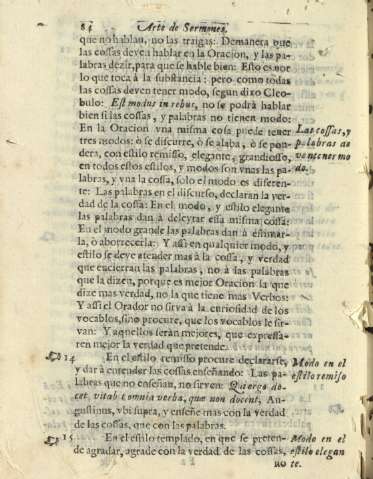 84 Arte de Sermones,
que no hablan, no las traigas: Demanera que
las cossas deven hablar en la Oracion, y las pa-
labras dezir, para que se hable bien: Esto es por
lo que toca à la substancia: pero como todas
las cossas deven tener modo, segun dixo Cleo-
bulo: Est modus in rebus, no se podrà hablar
bien si las cossas, y palabras no tienen modo:
En la Oracion vna misma cosa puede tener
tres modos: ò se discurre, ò se alaba, ò se pon-
dera, con estilo remisso, elegante, grandiosso,
en todos estos estilos, y modos son vnas las pa-
labras, y vna la cossa, solo el modo es diferen-
te: Las palabras en el discurso, declaran la ver-
dad de la cossa: En el modo, y estilo elegante
las palabras dan à deleytar essa misma cossa:
En el modo grande las palabras dan à estimar-
la, ò aborrecerla: Y assi en qualquier modo, y
estilo se deve atender mas à la cossa, y verdad
que encierran las palabras, no à las palabras
que la dizen, porque es mejor Oracion la que
dize mas verdad, no la que tiene mas Verbos:
Y assi el Orador no sirva à la curiosidad de los
vocablos, sino procure, que los vocablos le sir-
van: Y aquellos seràn mejores, que expressa-
ren mejor la verdad que pretende.
Las cossas, y
palabras de
ven tener mo
do.
14 En el estilo remisso procure declararse,
y dar à entender las cossas enseñando: Las pa-
labras que no enseñan, no sirven: Qui ergo do-
cet, vitabit omnia verba, quæ non docent, Au-
gustinus, vbi supra, y enseñe mas con la verdad
de las cossas, que con las palabras.
Modo en el
estilo remiso
15 En el estilo templado, en que se preten-
de agradar, agrade con la verdad de las cossas,
no
Modo en el
estilo elegan
te.